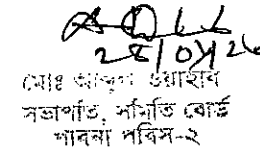 28/07/26
মোঃ আব্দুল ওয়াহাব
সভাপতি, সমিতি বোর্ড
পাবনা পবিস-২